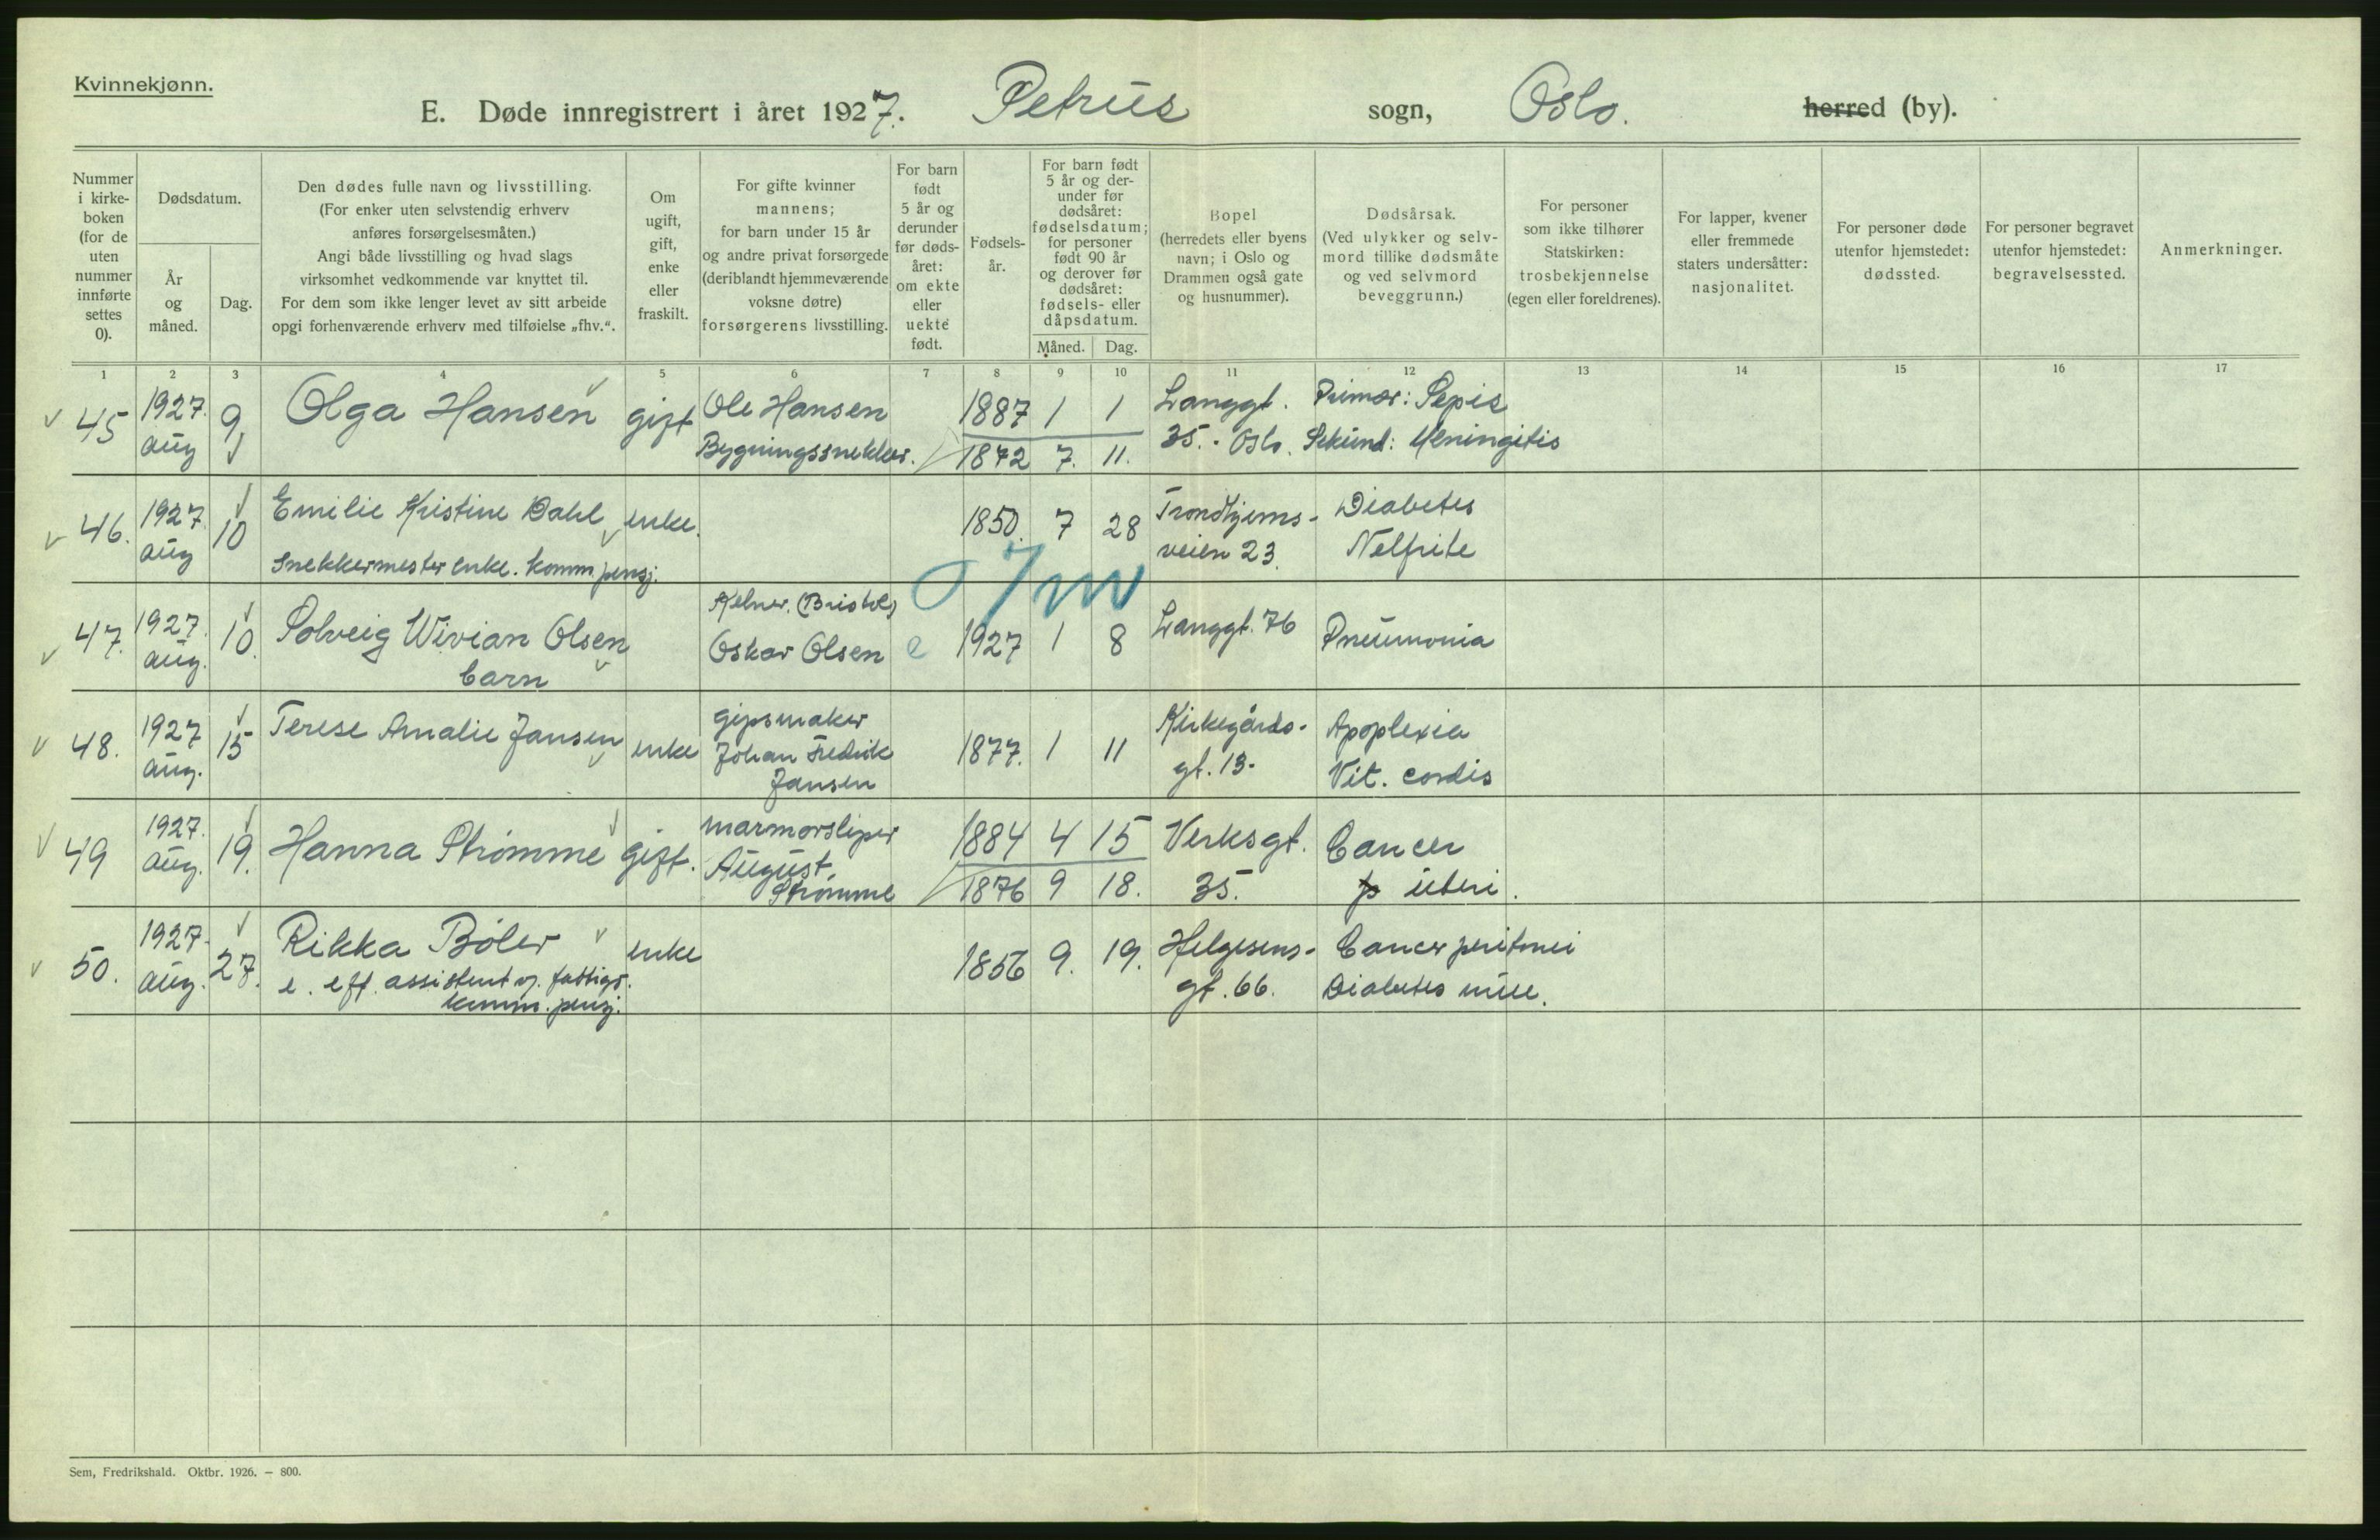 Kvinnekjønn.
E. Døde innregistrert i året 1927. Petrus sogn, Oslo. herred (by).
Nummer i kirke-boken (for de uten nummer innførte settes 0).
Dødsdatum.
År og måned.
Dag.
Den dødes fulle navn og livsstilling.
(For enker uten selvstendig erhverv
anføres forsørgelsesmåten.)
Angi både livsstilling og hvad slags
virksomhet vedkommende var knyttet til.
For dem som ikke lenger levet av sitt arbeide
opgi forhenværende erhverv med tilføielse „fhv.“.
Om ugift, gift, enke eller fraskilt.
For gifte kvinner
mannens;
for barn under 15 år
og andre privat forsørgede
(deriblandt hjemmeværende
voksne døtre)
forsørgerens livsstilling.
For barn født 5 år og derunder før døds-året: om ekte eller uekte født.
Fødsels-år.
For barn født 5 år og der-under før dødsåret: fødselsdatum; for personer født 90 år og derover før dødsåret: fødsels- eller dåpsdatum.
Måned. Dag.
Bopel
(herredets eller byens
navn; i Oslo og
Drammen også gate
og husnummer).
Dødsårsak.
(Ved ulykker og selv-
mord tillike dødsmåte
og ved selvmord
beveggrunn.)
For personer
som ikke tilhører
Statskirken:
trosbekjennelse
(egen eller foreldrenes).
For lapper, kvener
eller fremmede
staters undersåtter:
nasjonalitet.
For personer døde
utenfor hjemstedet:
dødssted.
For personer begravet
utenfor hjemstedet:
begravelsessted.
Anmerkninger.
1 2 3 4 5 6 7 8 9 10 11 12 13 14 15 16 17
45 1927. aug 9 Olga Hansen gift Ole Hansen 1887 1 1 Langgt. Primær: Sepis
Bygningssnekker. 1872 7. 11. 35. - Oslo. Sekund: Meningitis
46. 1927. aug 10 Emilie Kristine Dahl enke. 1850. 7 28 Trondhjems- Diabetes
Snekkermester enke. komm. pensj. veien 23. Nelfrite
47. 1927. aug. 10. Solveig Wivian Olsen Kelner. (Bristol) 1927 1 8 Langgt. 76 Pneumonia
barn Oskar Olsen e
48. 1927 aug. 15 Terese Amalie Jansen enke gipsmaker 1877. 1 11 Kirkegårds- Apoplexia
Johan Fredrik
Jansen gt. 13. Vit. cordis
49 1927. aug. 19. Hanna Strømme gift. marmorsliper 1884 4 15 Verksgt. Cancer
August
Strømme 1876 9 18. 35. uteri.
50. 1927. aug. 27. Rikka Bøler enke 1856 9. 19. Helgesens- Cancer peritonei
e. eft. assistent v. fattigv. gt. 66. Diabetes mell.
komm. pensj.
Sem, Fredrikshald. Oktbr. 1926. — 800.